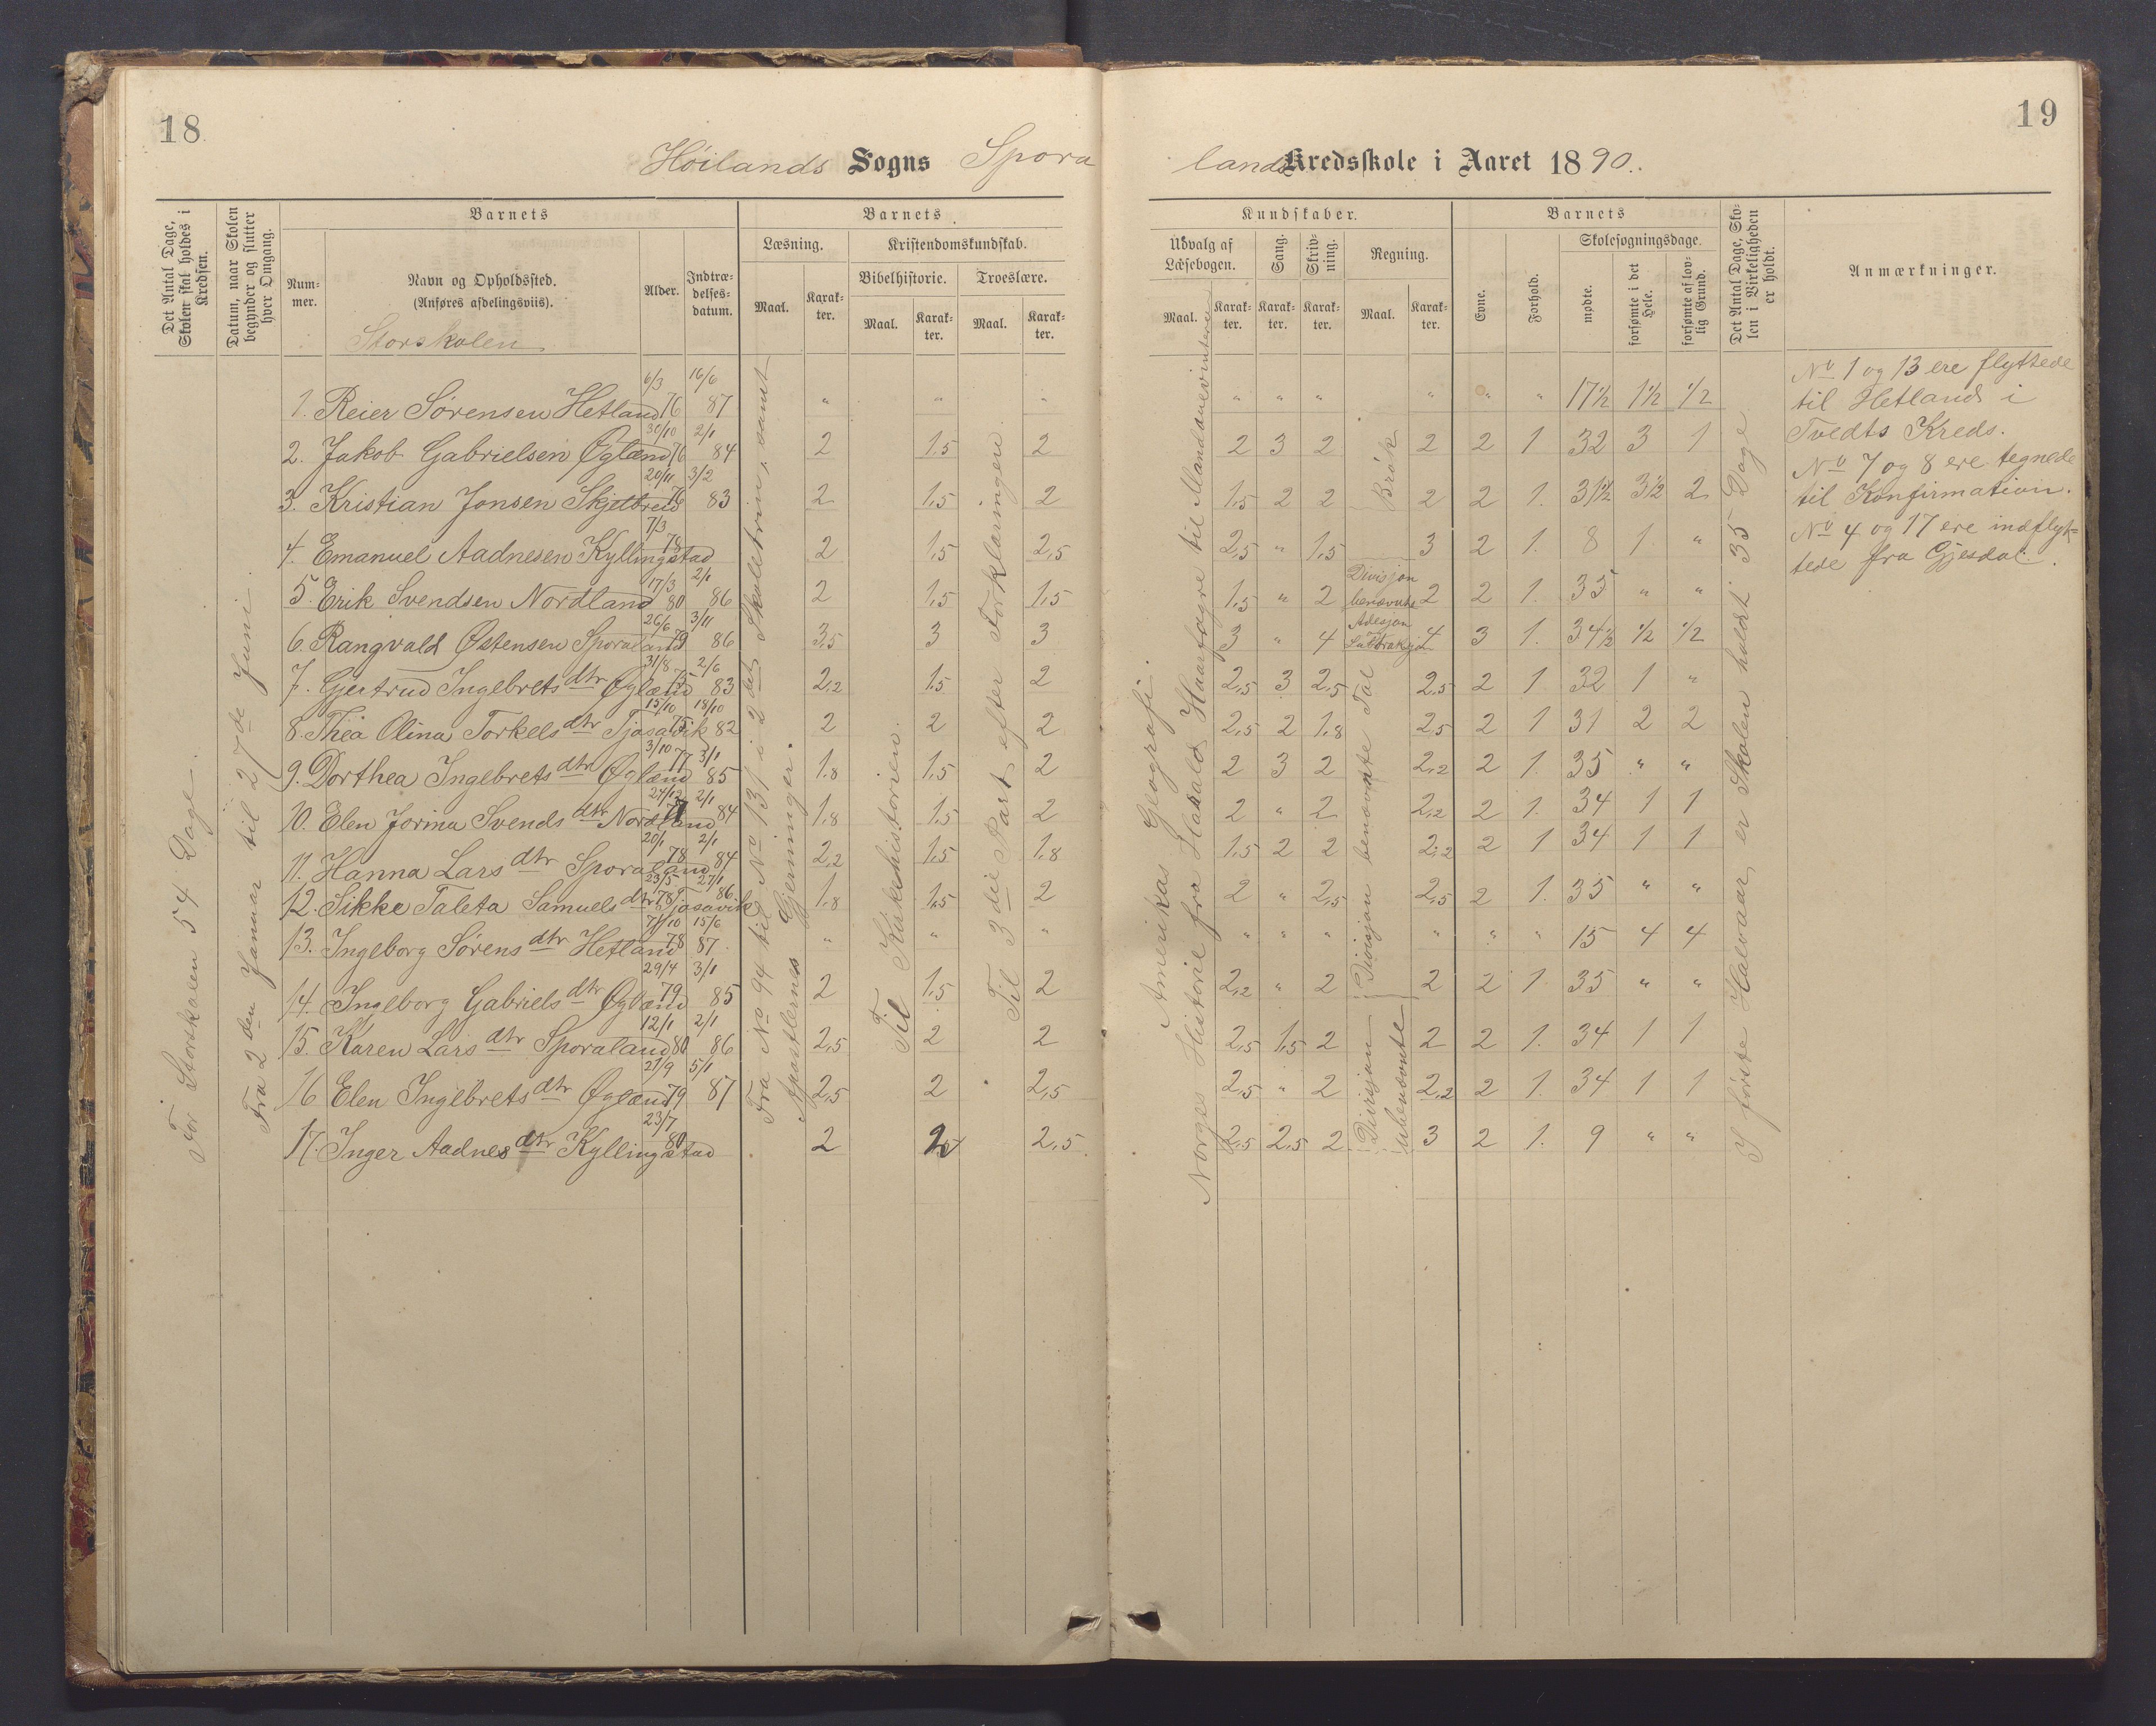 18
19
Höilands Sogns Spora
lands Kredsskole i Aaret 1890.
Det Antal Dage, Skolen skal holdes i Kredsen.
Datum, naar Skolen begynder og slutter hver Omgang.
Barnets
Num-
mer.
Navn og Opholdssted.
(Anføres afdelingsviis).
Alder.
Indtræ-
delses-
datum.
Barnets
Læsning.
Maal.
Karak-
ter.
Kristendomskundskab.
Bibelhistorie.
Troeslære.
Maal.
Karak-
ter.
Maal.
Karak-
ter.
Kundskaber.
Udvalg af
Læsebogen.
Sang.
Skriv-
ning.
Regning.
Maal.
Karak-
ter.
Karak-
ter.
Karak-
ter.
Maal.
Karak-
ter.
Barnets
Evne.
Forhold.
Skolesøgningsdage.
mødte.
forsømte i det Hele.
forsømte af lov-
lig Grund.
Det Antal Dage, Sko-
len i Virkeligheden
er holdt.
Anmærkninger.
Storskolen
For Storskolen 54 Dage.
Fra 2den Januar til 27de Juni.
1. Reier Sörensen Hetland 6/3 76 16/6 87 " " " " " " " " " 17 1/2 1 1/2 1/2
2. Jakob Gabrielsen Öglænd 30/10 76 2/1 84 2 1.5 2 2 3 2 2 2 1 32 3 1
3. Kristian Jonsen Skjelbreid 20/11 76 3/2 83 2 1.5 2 1.5 2 2 2 2 1. 31 1/2 3 1/2 2
4. Emanuel Aadnesen Kyllingstad 7/3 78 2 1.5 2,5 2,5 " 1.5 3 2 1. 8 1 "
5. Erik Svendsen Nordland 17/3 80 2/1 86 2 1.5 1.5 1.5 " 2 2 2 1. 35 " "
6. Rangvald Östensen Sporaland 26/6 79 3/11 86 3,5 3 3 3 " 4 4 3 1. 34 1/2 1/2 1/2
7. Gjertrud Ingebretsdtr Öglænd 31/8 75 2/6 83 2,2 1.5 2 2,5 3 2,5 2,5 2 1 32 1 "
8. Thea Olina Torkelsdtr Tjøsavik 15/10 75 18/10 82 2 2 2 2,5 2 1.8 2,5 2 1 31 2 2
9. Dorthea Ingebretsdtr Öglænd 3/10 77 3/1 85 1.8 1.5 2 2 3 2 2,2 2 1. 35 " "
10. Elen Jorina Svendsdtr Nordland 27/12 77 2/1 84 1.8 1.5 2 2 " 2 2,2 2 1. 34 1 1
11. Hanna Larsdtr Sporaland 20/1 78 2/1 84 2,2 1.5 1.8 1.5 2 2 2,2 2 1 34 1 1
12. Sikke Taleta Samuelsdtr Tjøsavik 23/5 78 27/1 86 1.8 1.5 2 2 " 2,5 2,5 2 1. 35 " "
13. Ingeborg Sörensdtr Hetland 7/10 78 15/6 87 " " " " " " " " " 15 4 4
14. Ingeborg Gabrielsdtr Öglænd 29/4 79 3/1 85 2 1.5 2 2,2 " 2 2 2 1. 35 " "
15. Karen Larsdtr Sporaland 12/1 80 2/1 86 2,5 2 2 2,5 1,5 2 2 2 1. 34 1 1
16 Elen Ingebretsdtr Öglænd 21/9 79 5/1 87 2,5 2 2,5 2,5 " 2 2,2 2 1. 34 1 1
17. Inger Aadnesdtr Kyllingstad 23/7 80 2 2,5 2,5 2,5 2 3 2 1. 9 " "
Fra No 94 til No 131 i 2det Skoletrin, samt
Apostlernes Gjerninger.
Til Kirkehistorien.
Til 3die Part efter Forklaringen.
Amerikas Geografi.
Norges Historie fra Harald Haarfagre til
Brök
Divisjon
benævnte
Adesjon
og
Subtraksjon
Divisjon benævnte Tal
Divisjon
ubenævnte
I første Halvaar, er Skolen holdt 35 Dage
No 1 og 13 ere flyttede
til Hetland i
Tvedts Kreds.
No 7 og 8 ere tegnede
til Konfirmation.
No 4 og 17 ere indflyt-
tede fra Gjesdal.